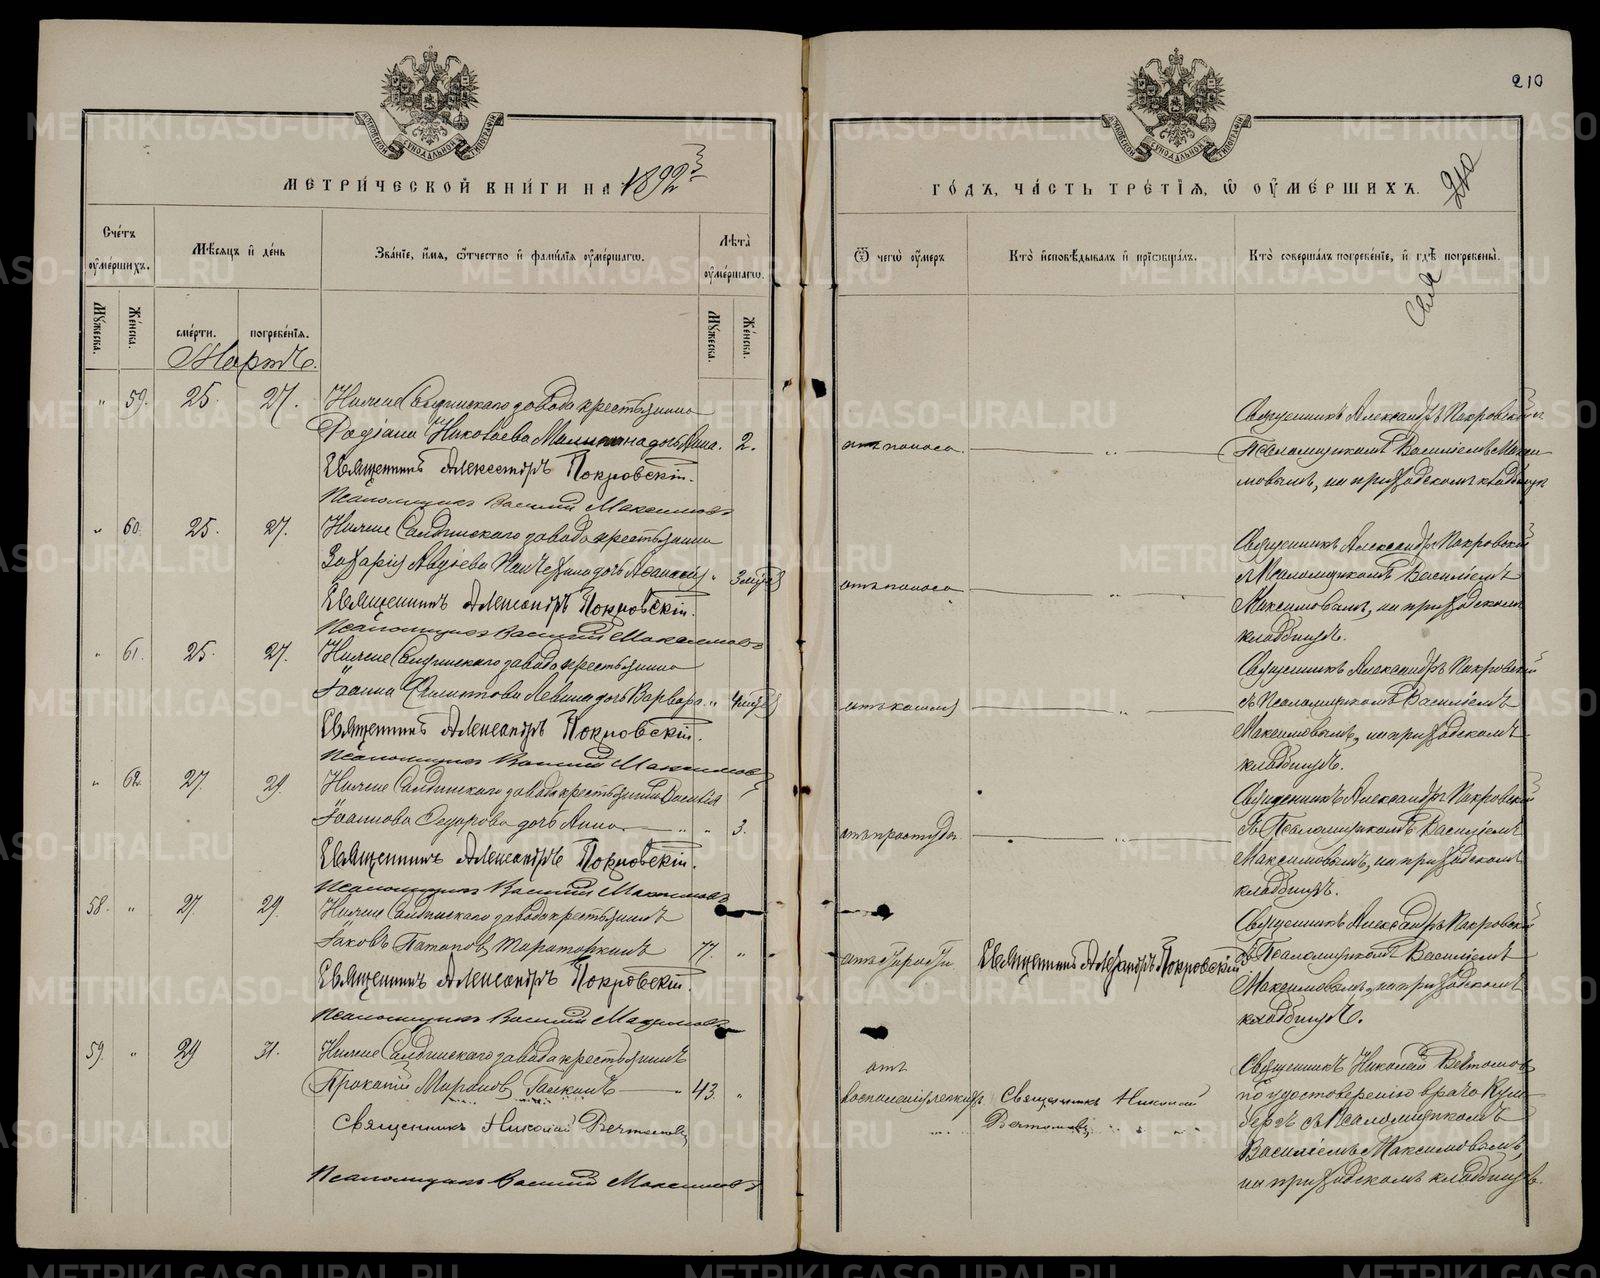 210
МЕТРИЧЕСКОЙ КНИГИ НА 1892
ГОДЪ, ЧАСТЬ ТРЕТІЯ, Ѽ ОУМЕРШИХЪ.
210
Счетъ оумершихъ.
Мѣсяцъ и день
Званіе, имя, ѿчество и фамилія оумершагѡ.
Лѣта оумершагѡ.
Ѿ чегѡ оумеръ
Кто исповѣдывалъ и пріѡбщалъ.
Кто совершалъ погребеніе, и гдѣ погребены.
Мужеска.
Женска.
смерти.
погребенія.
Мужеска.
Женска.
Мартъ.
" 59. 25. 27. Нижне Салдинскаго завода крестьянина
Николаева дочь Анна. 2.
отъ поноса. — " —
Священникъ Александръ Покровскій
Псаломщикомъ Василіемъ Макси
мовымъ, на приходскомъ кладбищѣ
Священникъ Александръ Покровскій.
Псаломщикъ Василій Максимовъ
" 60. 25. 27. Нижне Салдинскаго завода крестьянина
Захарія дочь "
отъ поноса — " —
Священникъ Александръ Покровскій
съ Псаломщикомъ Василіемъ
Максимовымъ, на приходскомъ
кладбищѣ.
Священникъ Александръ Покровскій.
Псаломщикъ Василій Максимовъ
" 61. 25. 27. Нижне Салдинскаго завода крестьянина
Іоанна Левина дочь Варвара. "
отъ кашля — " —
Священникъ Александръ Покровскій
съ Псаломщикомъ Василіемъ
Максимовымъ, на приходскомъ
кладбищѣ.
Священникъ Александръ Покровскій.
Псаломщикъ Василій Максимовъ
" 62. 27. 29. Нижне Салдинскаго завода крестьянина Василія
Іоаннова дочь Анна — " " 3.
отъ простуды — " —
Священникъ Александръ Покровскій
съ Псаломщикомъ Василіемъ
Максимовымъ, на приходскомъ
кладбищѣ.
Священникъ Александръ Покровскій.
Псаломщикъ Василій Максимовъ
58. " 27. 29. Нижне Салдинскаго завода крестьянинъ
Іаковъ Патаповъ 77. "
отъ старости
Священникъ Александръ Покровскій
Священникъ Александръ Покровскій
съ Псаломщикомъ Василіемъ
Максимовымъ, на приходскомъ
кладбищѣ.
Священникъ Александръ Покровскій.
Псаломщикъ Василій Максимовъ
59. " 29 31. Нижне Салдинскаго завода крестьянинъ
Прокопій Мироновъ Галкинъ — " 43. "
отъ
воспаленія легкихъ
Священникъ Николай
Священникъ Николай
по удостоверенію врача
съ Псаломщикомъ
Василіемъ Максимовымъ,
на приходскомъ кладбищѣ.
Священникъ Николай
Псаломщикъ Василій Максимовъ
METRIKI.GASO-URAL.RU